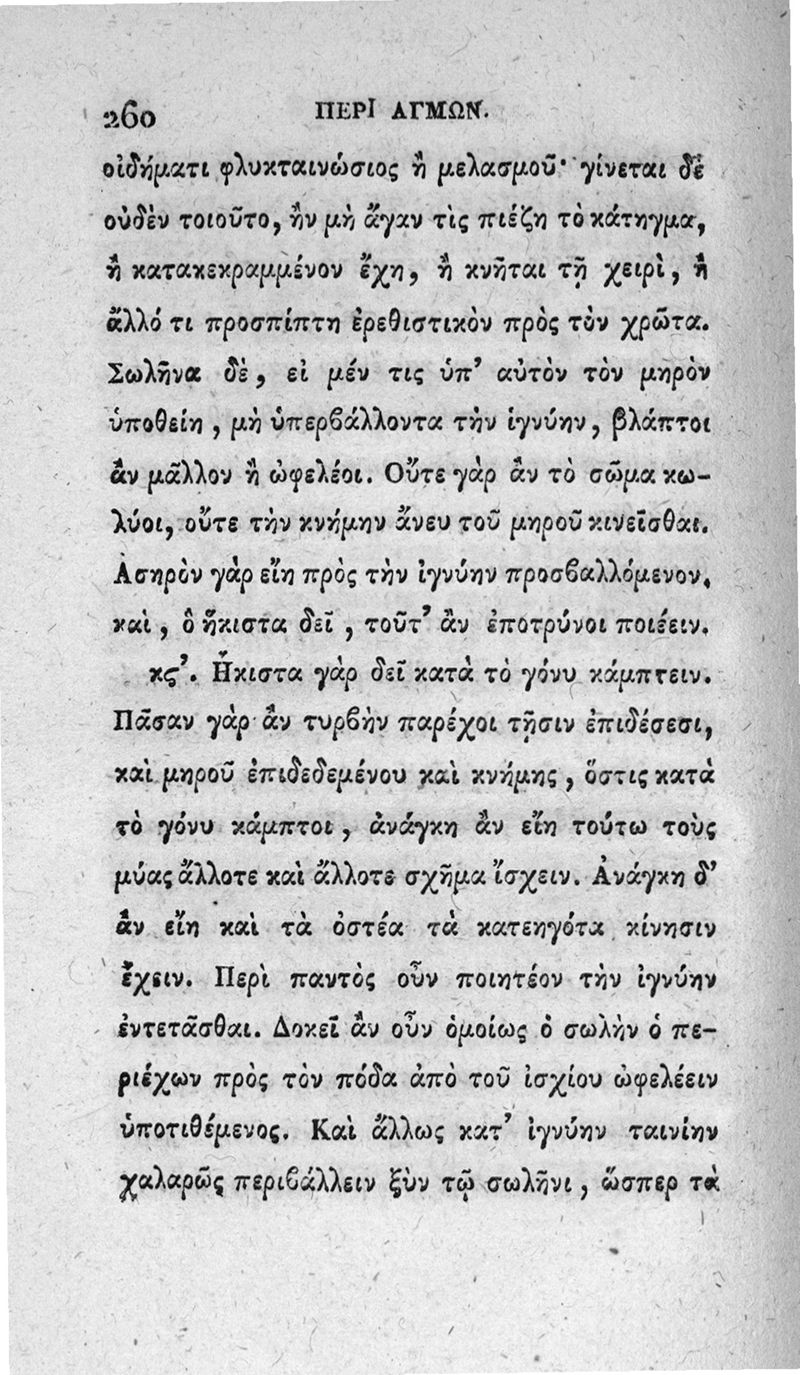 260 ΠΕΡΙ ΑΓΜΩΝ.
οἰδήματι φλυκταινώσιος ἢ μελασμοῦ· γίνεται δὲ
οὐδὲν τοιοῦτο, ἢν μὴ ἄγαν τὶς πιέζη τὸ κάτηγμα,
ἢ κατακεκραμμένον ἔχη, ἢ κνῆται τῇ χειρὶ, ἢ
ἄλλό τι προσπίπτη ἐρεθιστικὸν πρὸς τὸν χρῶτα.
Σωλῆνα δὲ, εἰ μέν τις ὑπ’ αὐτὸν τὸν μηρὸν
ὑποθείη, μὴ ὑπερβάλλοντα τὴν ἰγνύην, βλάπτοι
ἂν μᾶλλον ἢ ὠφελέοι. Οὔτε γὰρ ἂν τὸ σῶμα κω-
λύοι, οὔτε τὴν κνήμην ἄνευ τοῦ μηροῦ κινεῖσθαι.
Ασηρὸν γὰρ εἴη πρὸς τὴν ἰγνύην προσβαλλόμενον,
καὶ, ὃ ἥκιστα δεῖ, τοῦτ’ ἂν ἐποτρύνοι ποιέειν.
κς’. Ἥκιστα γὰρ δεῖ κατὰ τὸ γόνυ κάμπτειν.
Πᾶσαν γὰρ ἂν τυρβὴν παρέχοι τῇσιν ἐπιδέσεσι,
καὶ μηροῦ ἐπιδεδεμένου καὶ κνήμης, ὅστις κατὰ
τὸ γόνυ κάμπτοι, ἀνάγκη ἂν εἴη τούτω τοὺς
μύας ἄλλοτε καὶ ἄλλοτε σχῆμα ἴσχειν. Ἀνάγκη δ’
ἂν εἴη καὶ τὰ ὀστέα τὰ κατεηγότα κίνησιν
ἔχειν. Περὶ παντὸς οὖν ποιητέον τὴν ἰγνύην
ἐντετᾶσθαι. Δοκεῖ ἂν οὖν ὁμοίως ὁ σωλὴν ὁ πε-
ριέχων πρὸς τὸν πόδα ἀπὸ τοῦ ἰσχίου ὠφελέειν
ὑποτιθέμενος. Καὶ ἄλλως κατ’ ἰγνύην ταινίην
χαλαρῶς περιβάλλειν ξὺν τῷ σωλῆνι, ὥσπερ τὰ